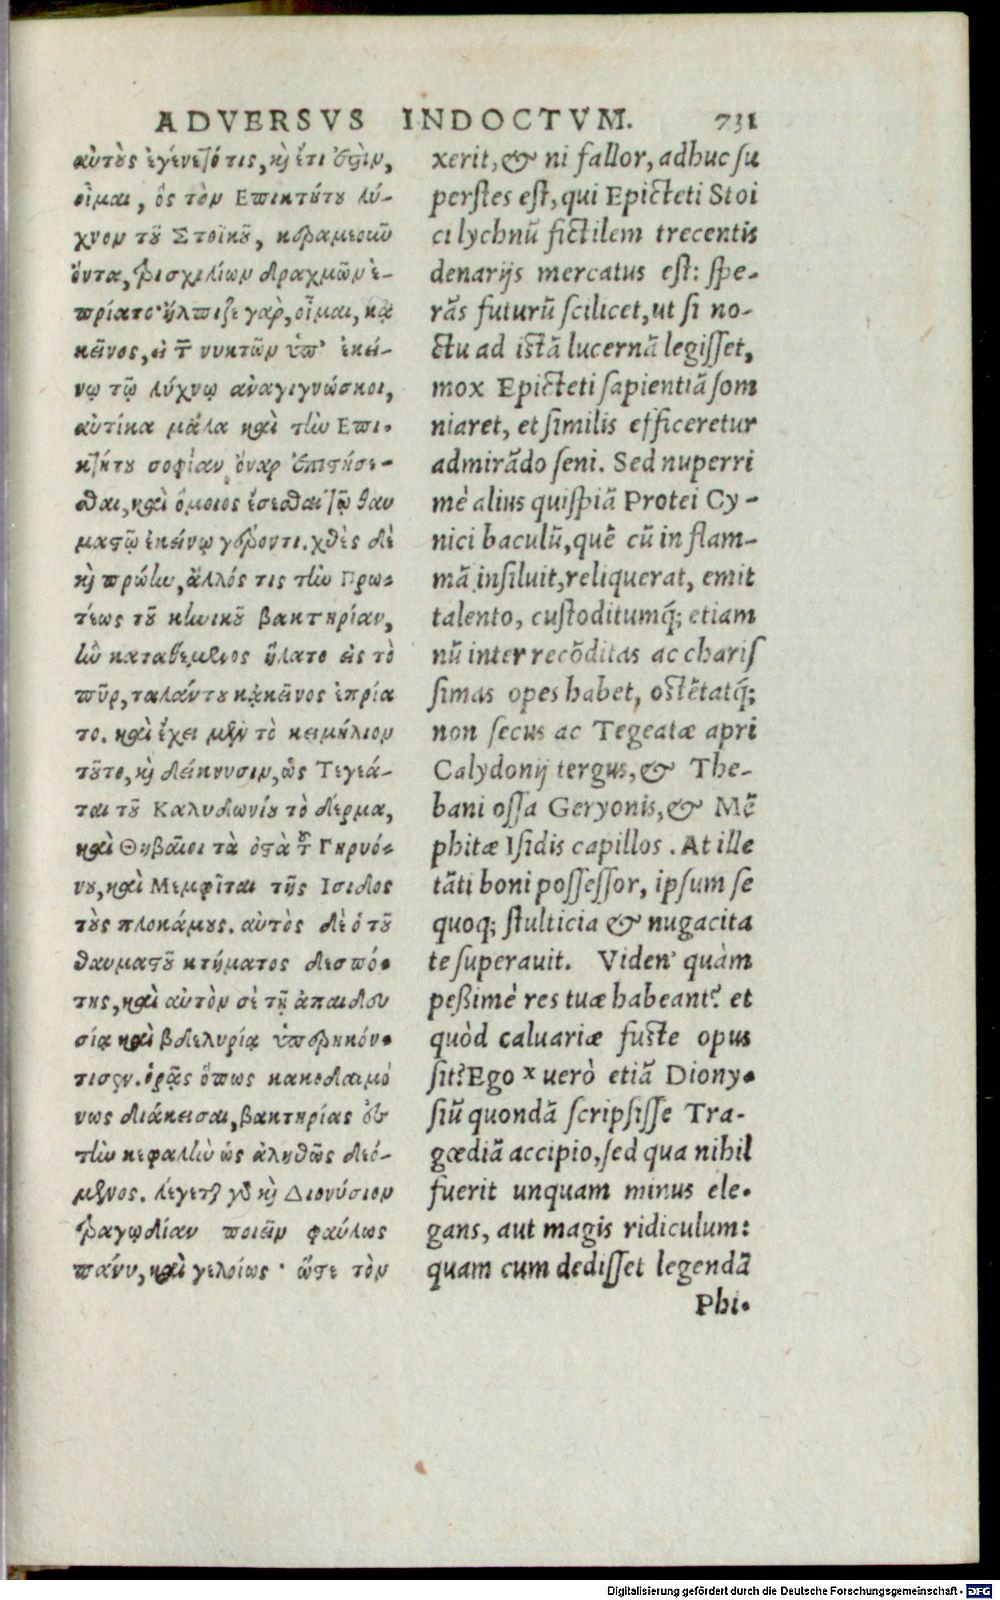 ADVERSVS INDOCTVM. 731
αὐτοὺς ἐγένετό τις, καὶ ἔτι ἐστὶν,
οἶμαι, ὃς τὸν Επικτήτου λύ-
χνον τοῦ Στοϊκοῦ, κεραμεοῦν
ὄντα, τρισχιλίων δραχμῶν ἐ-
πρίατο· ἤλπιζε γὰρ, οἶμαι, κᾀ
κεῖνος, εἰ τῶν νυκτῶν ὑπ' ἐκεί-
νῳ τῷ λύχνῳ ἀναγιγνώσκοι,
αὐτίκα μάλα καὶ τὴν Επι-
κτήτου σοφίαν ὄναρ ἐπικτήσε-
σθαι, καὶ ὅμοιος ἔσεσθαι τῷ θαυ
μαστῷ ἐκείνῳ γέροντι. χθὲς δὲ
καὶ πρώην, ἄλλός τις τὴν Πρω-
τέως τοῦ κυνικοῦ βακτηρίαν,
ἣν καταθέμενος ἥλατο εἰς τὸ
πῦρ, ταλάντου κᾀκεῖνος ἐπρία
το. καὶ ἔχει μὲν τὸ κειμήλιον
τοῦτο, καὶ δείκνυσιν, ὡς Τεγεά-
ται τοῦ Καλυδωνίου τὸ δέρμα,
καὶ Θηβαῖοι τὰ ὀστᾶ τοῦ Γηρυό-
νου, καὶ Μεμφῖται τῆς Ισιδος
τοὺς πλοκάμους. αὐτὸς δὲ ὁ τοῦ
θαυμαστοῦ κτήματος δεσπό-
της, καὶ αὐτὸν σὲ τῇ ἀπαιδευ
σίᾳ καὶ βδελυρίᾳ ὑπερηκόν-
τισεν. ὁρᾷς ὅπως κακοδαιμό
νως διάκεισαι, βακτηρίας εἰς
τὴν κεφαλὴν ὡς ἀληθῶς δεό-
μενος. λέγεται γὰρ καὶ Διονύσιον
τραγῳδίαν ποιεῖν φαύλως
πάνυ, καὶ γελοίως· ὥστε τὸν
xerit, & ni fallor, adhuc su
perstes est, qui Epicteti Stoi
ci lychnũ fictilem trecentis
denarijs mercatus est: spe-
rãs futurũ scilicet, ut si no-
ctu ad istã lucernã legisset,
mox Epicteti sapientiã som
niaret, et similis efficeretur
admirãdo seni. Sed nuperri
mè alius quispiã Protei Cy-
nici baculũ, quẽ cũ in flam-
mã insiluit, reliquerat, emit
talento, custoditumq́; etiam
nũ inter recõditas ac charis
simas opes habet, ostẽtatq́;
non secus ac Tegeatæ apri
Calydonij tergus, & The-
bani ossa Geryonis, & Mẽ
phitæ Isidis capillos. At ille
tãti boni possessor, ipsum se
quoq; stulticia & nugacita
te superauit. Viden' quàm
peßimè res tuæ habeant? et
quòd caluariæ fuste opus
sit? Ego x uerò etiã Diony-
siũ quondã scripsisse Tra-
gœdiã accipio, sed qua nihil
fuerit unquam minus ele-
gans, aut magis ridiculum:
quam cum dedisset legendã
Phi-
Digitalisierung gefördert durch die Deutsche Forschungsgemeinschaft - DFG